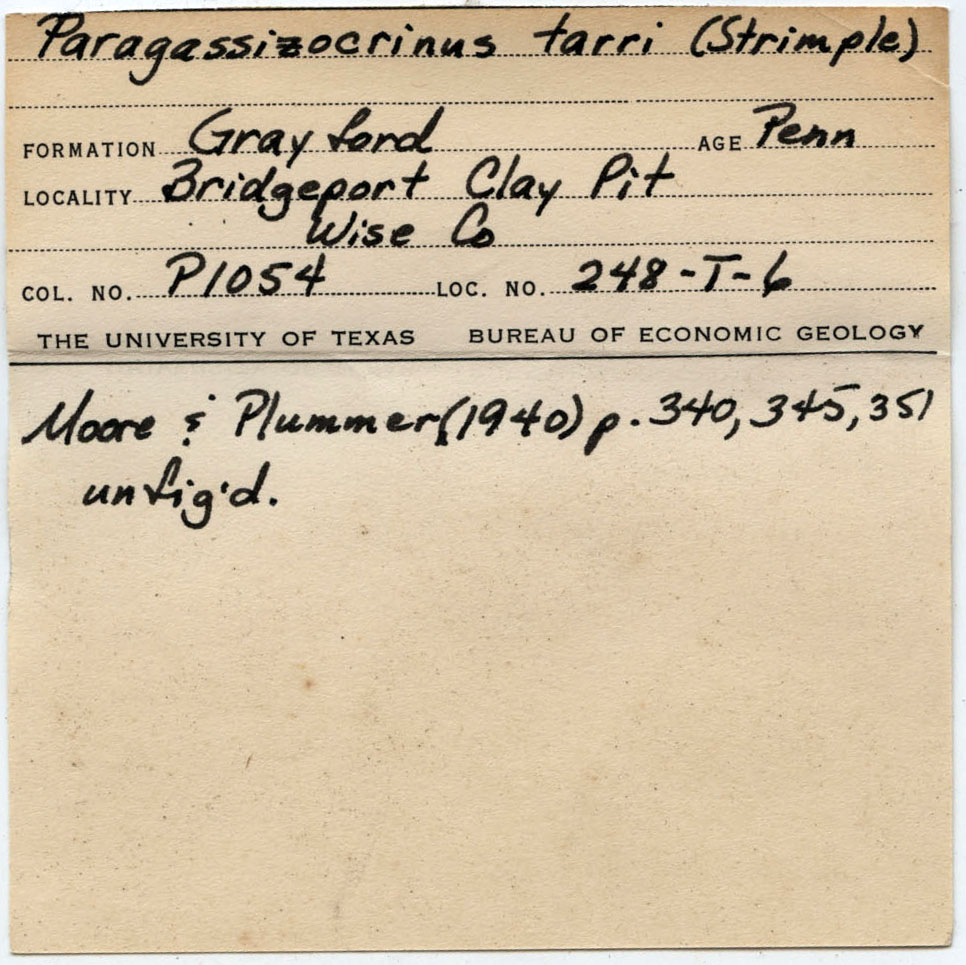 Paragassizocrinus tarri (Strimple)
FORMATION Grayford AGE Penn
LOCALITY Bridgeport Clay Pit
Wise Co
COL. NO. P1054 LOC. NO. 248-T-6
THE UNIVERSITY OF TEXAS BUREAU OF ECONOMIC GEOLOGY
Moore & Plummer (1940) p. 340, 345, 351
unfig'd.